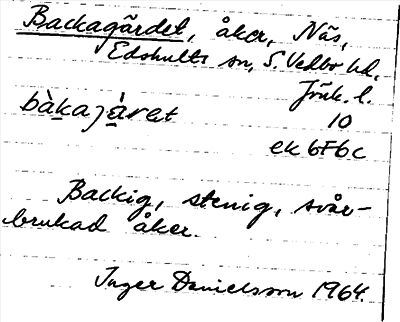 Backagärdet, åker, Näs,
Edshults sn, S. Vedbo hd,
Jönk. l.
bàkajǻret
10
ek 6F6c
Backig, stenig, svår-
brukad åker.
Inger Danielsson 1964.